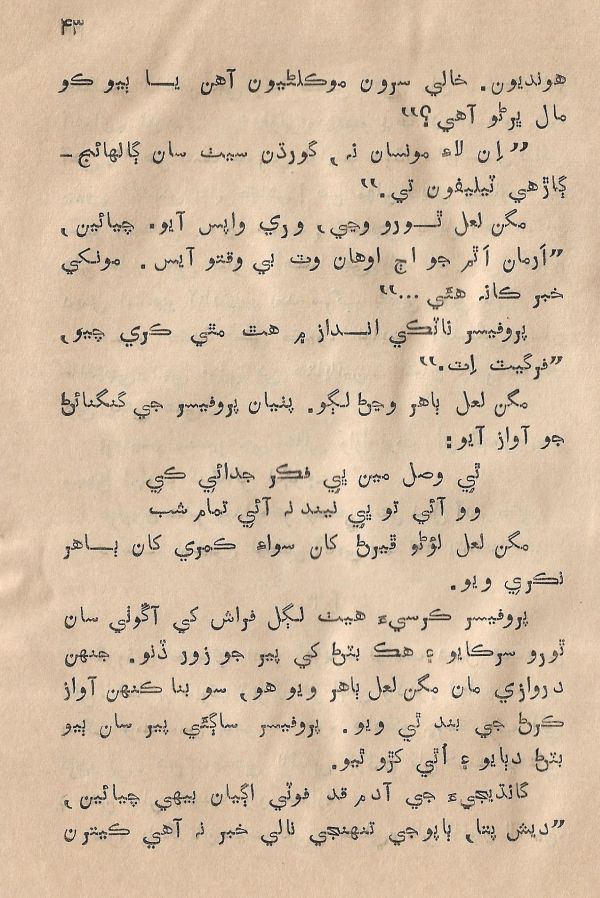 ۴۳
هونديون. خالي سرون موڪلڻيون آهن يا ٻيو ڪو
مال ڀرڻو آهي؟"
"اِن لاءِ مونسان نہ، گورڌن سيٺ سان ڳالهائج ـ
ڳاڙهي ٽيليفون تي."
مگن لعل ٿورو وڃي، وري واپس آيو. چيائين،
"اَرمان اَٿم جو اڄ اوهان وٽ بي وقتو آيس. مونکي
خبر ڪانہ هئي ..."
پروفيسر ناٽڪي انداز ۾ هٿ مٿي ڪري چيو،
"فرگيٽ اِٽ."
مگن لعل ٻاهر وڃڻ لڳو. پٺيان پروفيسر جي گنگنائڻ
جو آواز آيو:
ٿي وصل مين ڀي فڪر جدائي ڪي
وو آئي تو ڀي نيند نہ آئي تمام شب
مگن لعل لؤڻو ڦيرڻ کان سواءِ ڪمري کان ٻاهر
نڪري ويو.
پروفيسر ڪرسيءَ هيٺ لڳل فراش کي آڱوٺي سان
ٿورو سرڪايو ۽ هڪ بٽڻ کي پير جو زور ڏنو. جنهن
دروازي مان مگن لعل ٻاهر ويو هو، سو بنا ڪنهن آواز
ڪرڻ جي بند ٿي ويو. پروفيسر ساڳئي پير سان ٻيو
بٽڻ دٻايو ۽ اُٿي کڙو ٿيو.
گانڌيجيءَ جي آدم قد فوٽي اڳيان بيهي چيائين،
"ديش پتا، باپو جي تنهنجي نالي خبر نہ آهي ڪيترن